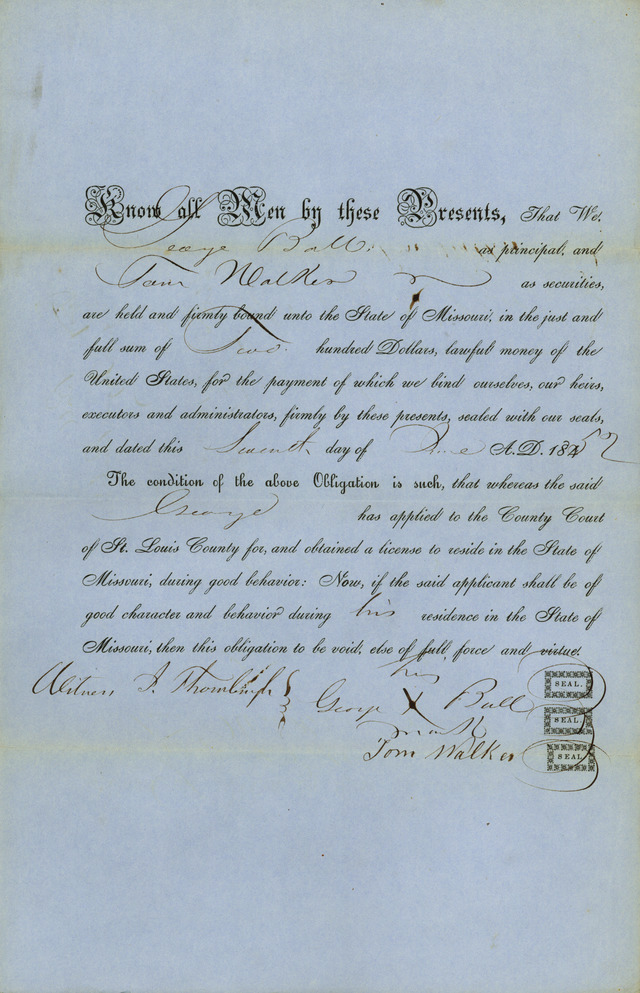 Know all Men by these Presents, That We,
George Ball as principal, and
Tom Walker as securities,
are held and firmly bound unto the State of Missouri, in the just and
full sum of Two hundred Dollars, lawful money of the
United States, for the payment of which we bind ourselves, our heirs,
executors and administrators, firmly by these presents, sealed with our seals,
and dated this Seventh day of June A. D. 1852
The condition of the above Obligation is such, that whereas the said
George has applied to the County Court
of St. Louis County for, and obtained a license to reside in the State of
Missouri, during good behavior: Now, if the said applicant shall be of
good character and behavior during his residence in the State of
Missouri, then this obligation to be void, else of full force and virtue.
his
Witness J. George X Ball SEAL.
mark SEAL
Tom Walker SEAL